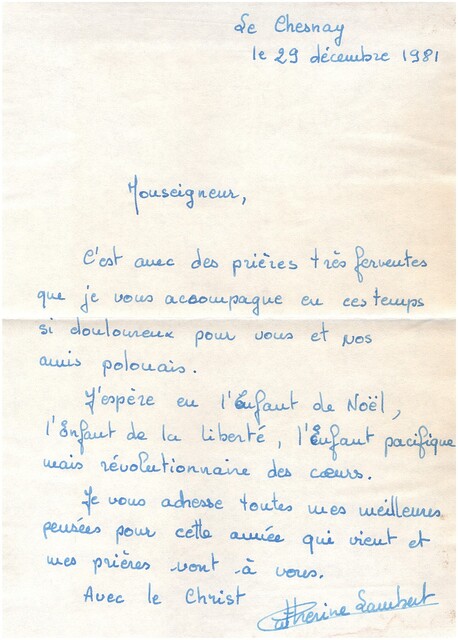 Le Chesnay
le 29 décembre 1981
Monseigneur,
C'est avec des prières très ferventes
que je vous accompagne en ces temps
si douloureux pour vous et nos
amis polonais.
J'espère en l'Enfant de Noël,
l'Enfant de la liberté, l'Enfant pacifique
mais révolutionnaire des cœurs.
Je vous adresse toutes mes meilleures
pensées pour cette année qui vient et
mes prières vont à vous.
Avec le Christ
Catherine Lambert